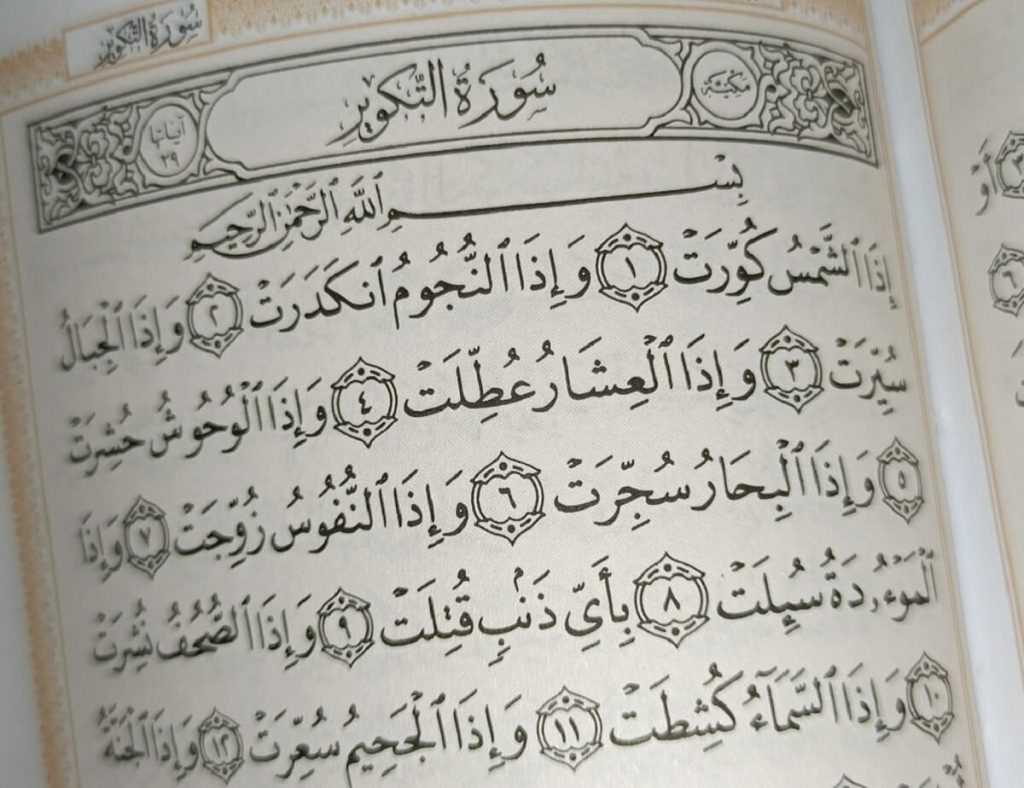 سُورَةُ التَّكْوِيرِ
مَكِّيَّة سُورَةُ التَّكْوِيرِ آيَاتُهَا ٢٩
بِسْمِ ٱللَّهِ ٱلرَّحْمَٰنِ ٱلرَّحِيمِ
إِذَا ٱلشَّمْسُ كُوِّرَتْ ١ وَإِذَا ٱلنُّجُومُ ٱنكَدَرَتْ ٢ وَإِذَا ٱلْجِبَالُ
سُيِّرَتْ ٣ وَإِذَا ٱلْعِشَارُ عُطِّلَتْ ٤ وَإِذَا ٱلْوُحُوشُ حُشِرَتْ
٥ وَإِذَا ٱلْبِحَارُ سُجِّرَتْ ٦ وَإِذَا ٱلنُّفُوسُ زُوِّجَتْ ٧ وَإِذَا
ٱلْمَوْءُۥدَةُ سُئِلَتْ ٨ بِأَىِّ ذَنۢبٍ قُتِلَتْ ٩ وَإِذَا ٱلصُّحُفُ نُشِرَتْ
١٠ وَإِذَا ٱلسَّمَآءُ كُشِطَتْ ١١ وَإِذَا ٱلْجَحِيمُ سُعِّرَتْ ١٢ وَإِذَا ٱلْجَنَّةُ